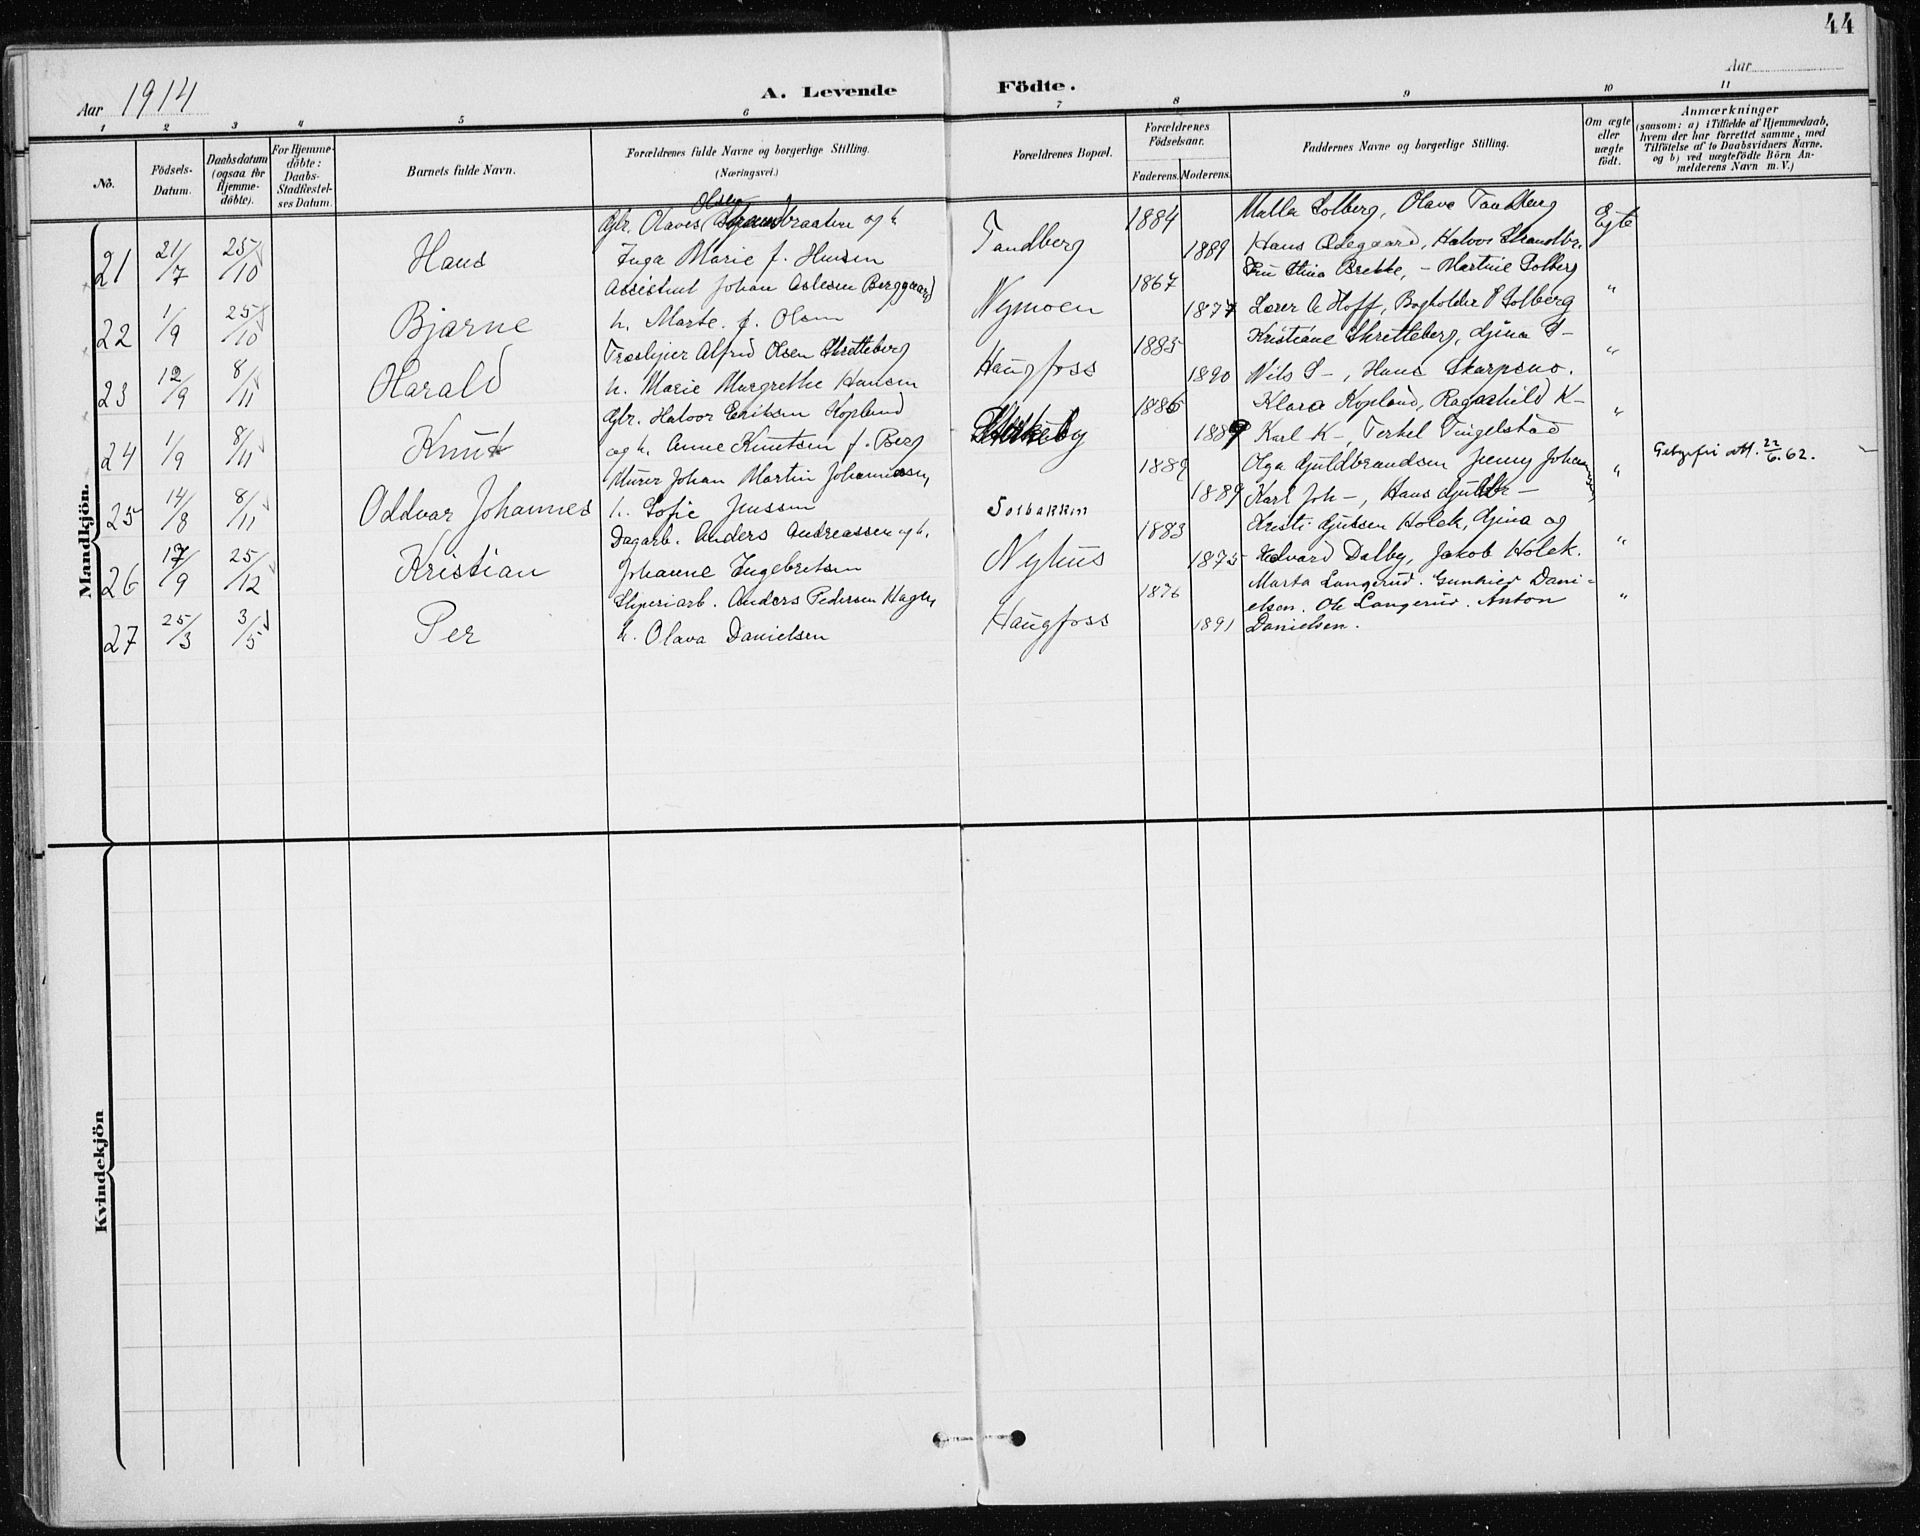 44
Aar 1914
A. Levende Födte.
Aar
1 2 3 4 5 6 7 8 9 10 11
No.
Födsels-Datum.
Daabsdatum (ogsaa for Hjemme-döbte).
For Hjemme-döbte: Daabs-Stadfæstel-ses Datum.
Barnets fulde Navn.
Forældrenes fulde Navne og borgerlige Stilling.
(Næringsvei.)
Forældrenes Bopæl.
Forældrenes Födselsaar.
Faderens. Moderens.
Faddernes Navne og borgerlige Stilling.
Om ægte eller uægte födt.
Anmærkninger
(saasom: a) i Tilfælde af Hjemmedaab,
hvem der har forrettet samme, med
Tilföielse af to Daabsvidners Navne,
og b) ved uægtefödte Börn An-
melderens Navn m. V.)
Mandkjön.
21 21/7 25/10 Hans
Gbr. Olaves Olsen braaten og h.
Inga Marie f. Hansen
Tandberg 1884 1889
Solberg, Olava Tandberg
Hans Ødegaard, Halvor Strandbr.
Egte
22 1/9 25/10 Bjarne
Assistent Johan Aslesen Berggaard
h. Marte f. Olsen
Nymoen 1867 1877
Stina Brekke, – Martine Solberg
Lærer A Hoff, Bogholder P Solberg
"
23 12/9 8/11 Harald
Træsliper Alfred Olsen Skretteberg
h. Marie Margrethe Hansen
Haugfoss 1885 1890
Kristiane Skretteberg, Gina S–
Nils S–, Hans Skarpsno.
"
24 1/9 8/11 Knut
Gbr. Halvor Eriksen Kopland
og h. Anne Knutsen f. Berg
1886 1889
Klara Kopland, Ragnhild K–
Karl K–, Terkel Tingelstad
"
25 14/8 8/11 Oddvar Johannes
Murer Johan Martin Johannessen,
h. Sofie Jenssen
Solbakken 1889 1889
Olga Guldbrandsen Jenny Johannsen
Karl Joh–, Hans Guldbr–
"
22/6. 62.
26 17/9 25/12 Kristian
Dagarb. Anders Andreassen og h.
Johanne Ingebretsen
Nyhus 1883 1875
Holek, Gina og
Halvard Dalby, Jakob Holek.
"
27 25/3 3/5 Per
Sliperiarb. Anders Pedersen Hagen,
h. Olava Danielsen
Haugfoss 1876 1891
Marta Langerud. Gunhild Dani-
elsen. Ole Langerud. Anton
Danielsen.
"
Kvindekjön